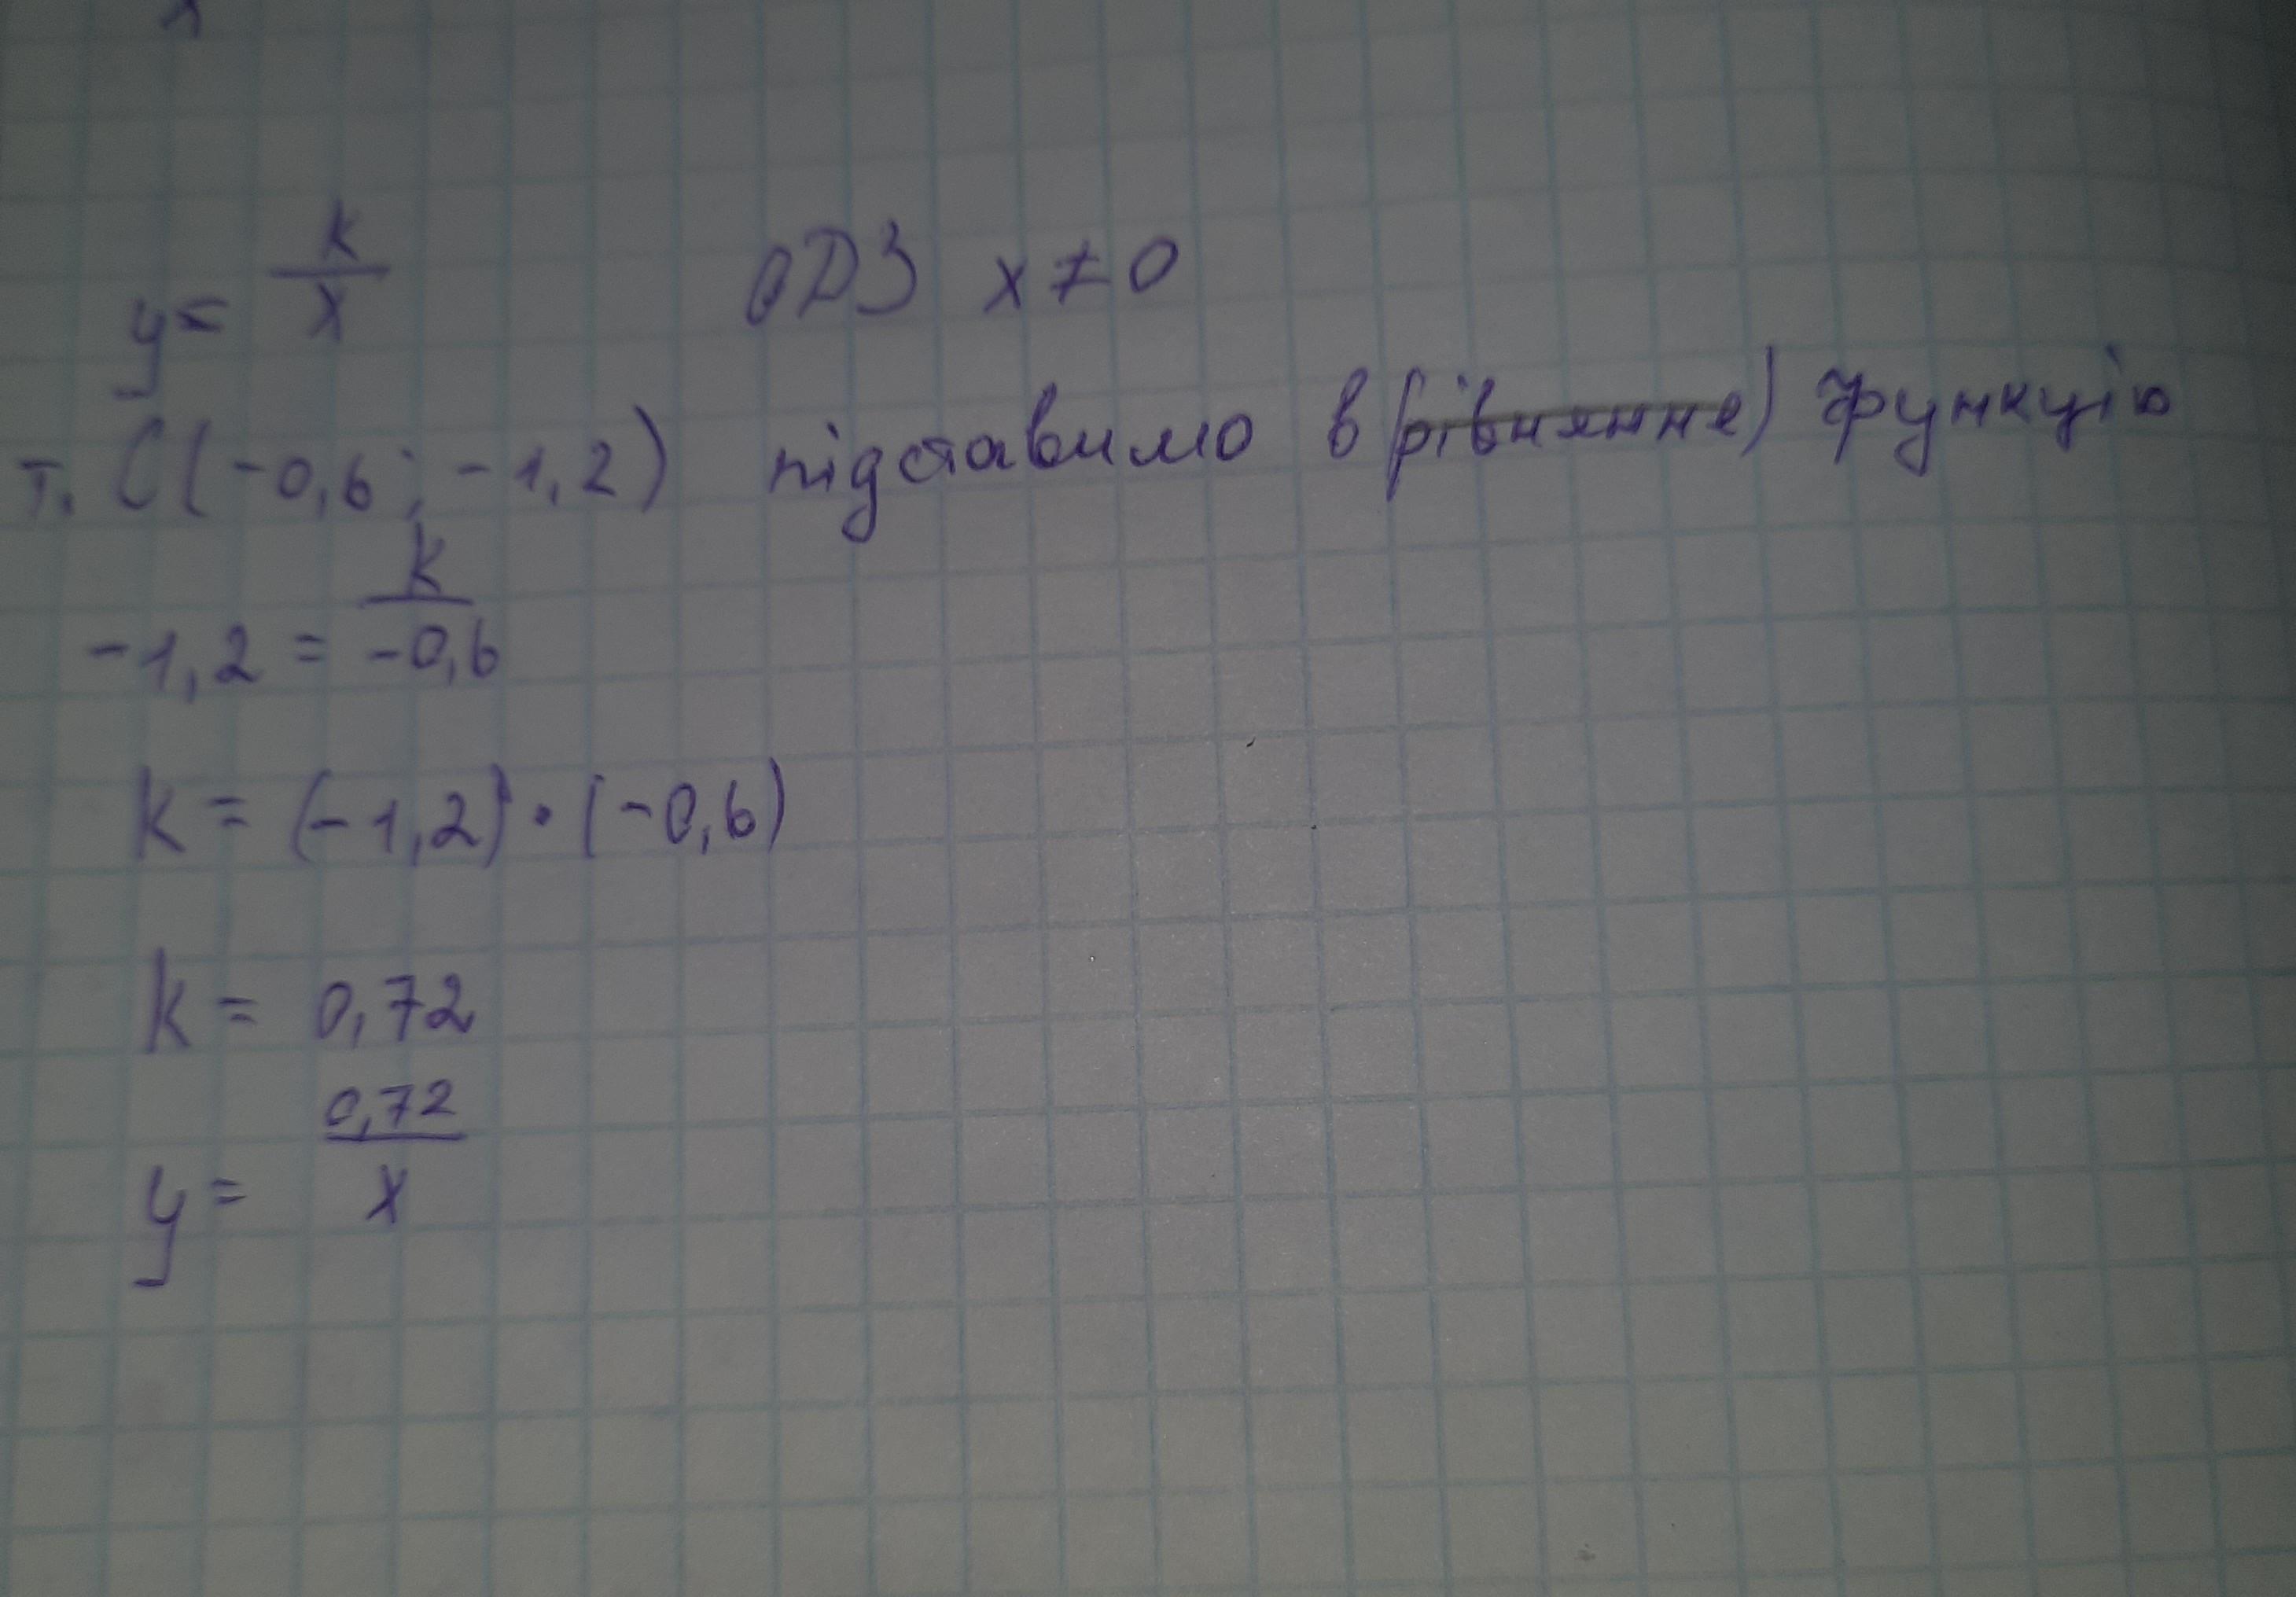 y = k/x ОДЗ x ≠ 0
т. C(-0,6; -1,2) підставимо в (рівняння) функцію
-1,2 = k/-0,6
k = (-1,2) · (-0,6)
k = 0,72
y = 0,72/x